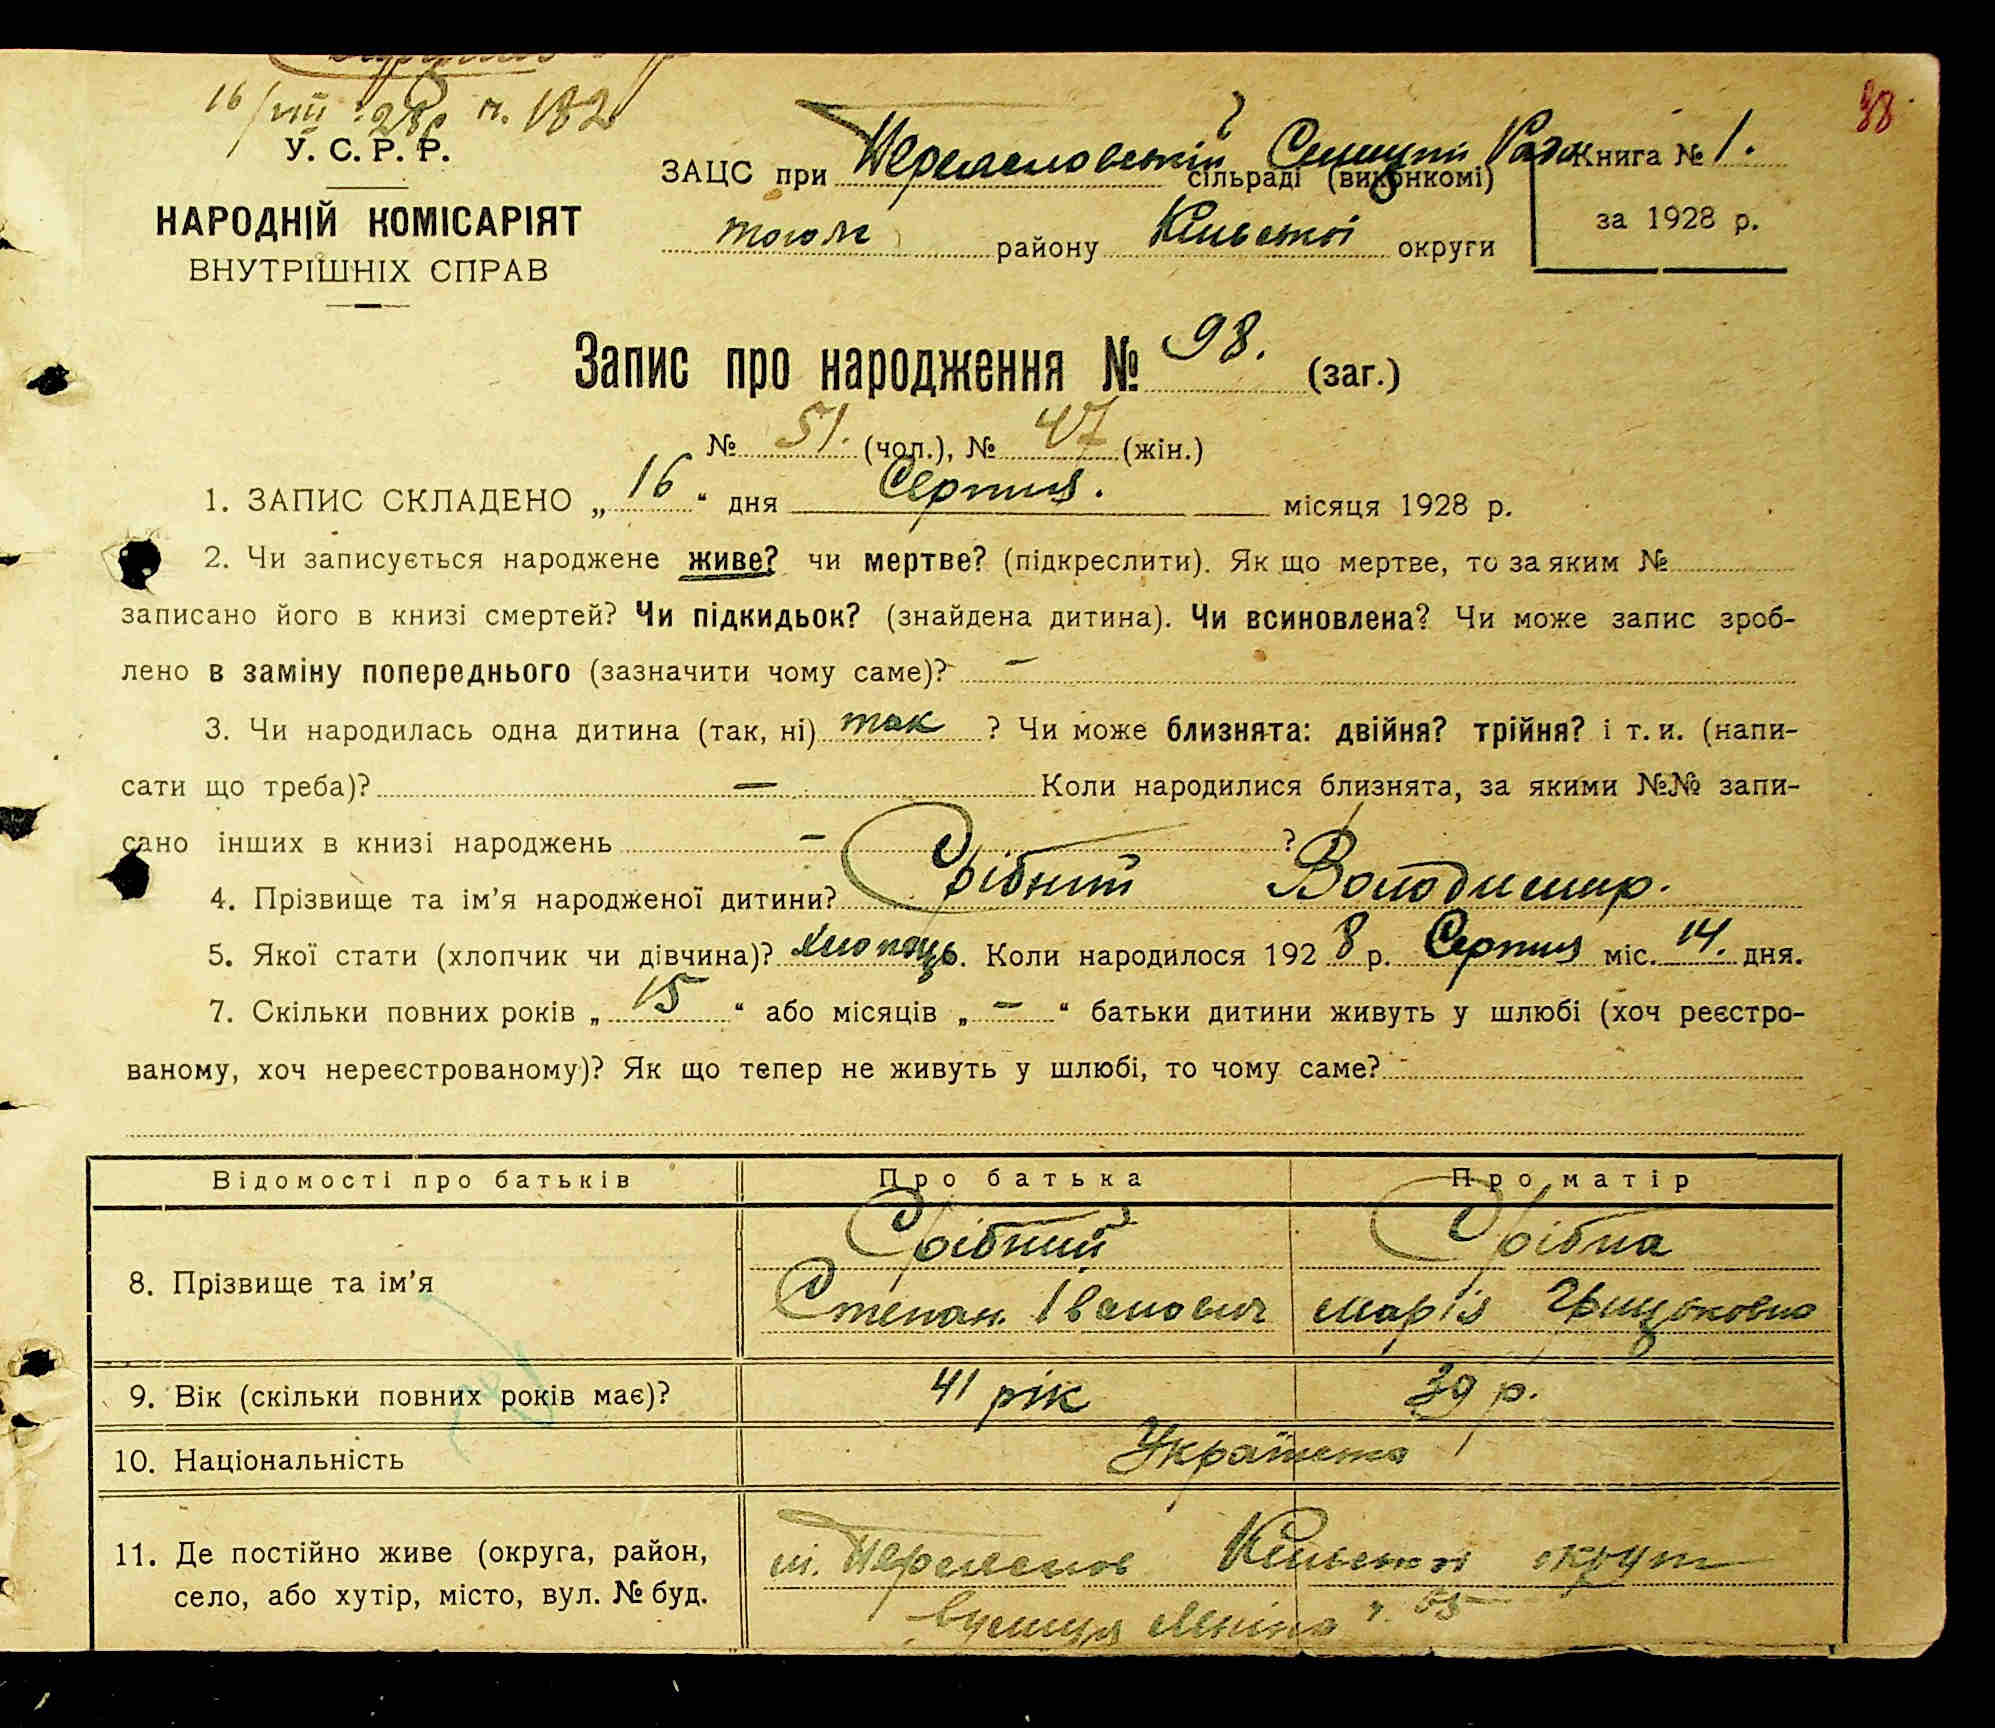 16/VIII 28р ч. 182
У. С. Р. Р.
НАРОДНІЙ КОМІСАРІЯТ
ВНУТРІШНІХ СПРАВ
ЗАЦС при сільраді (виконкомі)
району Київської округи
Книга № 1.
за 1928 р.
38
Запис про народження № 98. (заг.)
№ 51. (чол.), № 47 (жін.)
1. ЗАПИС СКЛАДЕНО „ 16 “ дня Серпня. місяця 1928 р.
2. Чи записується народжене живе? чи мертве? (підкреслити). Як що мертве, то за яким №
записано його в книзі смертей? Чи підкидьок? (знайдена дитина). Чи всиновлена? Чи може запис зроб-
лено в заміну попереднього (зазначити чому саме)? –
3. Чи народилась одна дитина (так, ні) так ? Чи може близнята: двійня? трійня? і т. и. (напи-
сати що треба)? – Коли народилися близнята, за якими №№ запи-
сано інших в книзі народжень – ?
4. Прізвище та ім’я народженої дитини? Срібний Володимир.
5. Якої стати (хлопчик чи дівчина)? хлопець. Коли народилося 1928 р. Серпня міс. 14. дня.
7. Скільки повних років „ 15 “ або місяців „ – “ батьки дитини живуть у шлюбі (хоч реєстро-
ваному, хоч нереєстрованому)? Як що тепер не живуть у шлюбі, то чому саме?
Відомості про батьків Про батька Про матір
8. Прізвище та ім’я
Срібний Срібна
Степан Іванович Марія
9. Вік (скільки повних років має)? 41 рік 39 р.
10. Національність
11. Де постійно живе (округа, район,
село, або хутір, місто, вул. № буд.
Київської округи
вулиця Леніна ч. 55